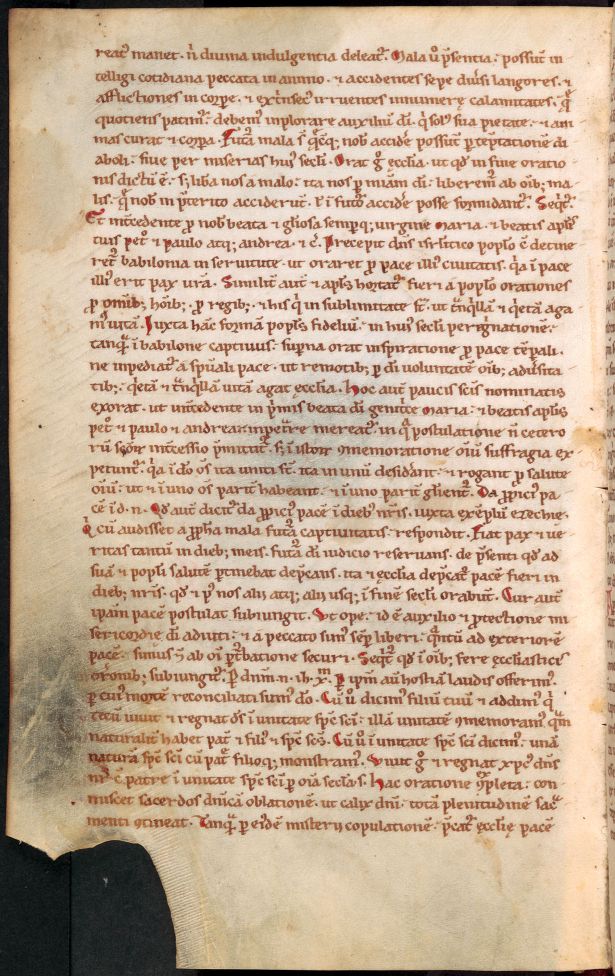 reat᷒ manet. n̄ diuina indulgentia deleat᷒. Mala u̾ p̄sentia. possuɴt in
telligi cotidiana peccata in animo. ⁊ accidentes sepe diu̾si langores. ⁊
afflictiones in corpe. ⁊ extͥnsec᷒ irruentes innumerę calamitates. q̄
quotiens patim᷒. debem᷒ inplorare auxiliū dī. qͥ sol᷒ sua pietate. ⁊ ani
mas curat ⁊ corpa. Futͣ mala s̄ q̄cq; nob̄ accidē possuɴt p̱ tēptationē di
aboli. siue per miserias hui᷒ sec̄li. Orat g̊ ecclia. ut qd̄ in fine oratio
nis dictū ē. s; liba nos a malo. ita nos p̱ mīam dī. liberem᷒ ab oīb; ma
lis. q̄ nob̄ in p̄terito acciderūt. ł ī futͦ accidē posse formidant᷒. Seqͥt᷒.
Et int̾cedente p̱ nob̄ beata ⁊ gl̄iosa semꝑq; uirgine maria. ⁊ beatis apl̄is
tuis pet̊ ⁊ paulo atq; andrea. ⁊ c̄. Precepit dn̄s isrl̄itico popl̄o cū detine
ret᷒ babilonia in seruitute. ut oraret p̱ pace illi᷒ ciuitatis. qͥa ī pace
illi᷒ erit pax urā. Similit̾ aut̄ ⁊ apl̄s hortat᷒ fieri a popl̄o orationes
p̱ omīb; hōib;. p̱ regib;. ⁊ his qͥ in sublimitate s̄t. ut tͣnqͥllā ⁊ qͥetā aga
m᷒ uitā. Iuxta hāc formā popl̄s fideliū. in hui᷒ sec̄li peregͥnatione.
tanqͣ ī babilone captiuus. supͥna orat inspiratione p̱ pace tēpali.
ne inpediat᷒ a spūali pace. ut remotib; p̱ dī uoluntatē oīb; adu̾sita
tib;. qͥetā ⁊ tͣnqͥllā uitā agat ecclīa. Hoc aut̄ paucis sc̄is nominatis
exorat. ut int̾cedente in pͥmis beata dī genitͥce maria. ⁊ beatis apl̄is
pet̊ ⁊ paulo ⁊ andrea. inpetͣre mereat᷒. in qͣ postulatione n̄ cetero
rū sc̄oꝝ int̾cessio p̄mittit᷒. s; ī istoꝝ ꝯmemoratione oīū suffragia ex
petunt᷒. qͥa ī dō oīs ita uniti s̄t. ita in unū desiderāt. ⁊ rogant p̱ salute
oīū. ut ⁊ ī uno oīs parit̾ habeant. ⁊ ī uno parit̾ gl̄ient᷒. Da p̱pici᷒ pa
cē ī d. n. Qd̄ aut̄ dicit᷒ da p̱pici᷒ pacē ī dieb᷒ nr̄is. iuxta exēplū ezechie.
Qͥ cū audisset a p̱pha mala futͣ captiuitatis. respondit. Fiat pax ⁊ ue
ritas tantū in dieb; meis. futͣ dī iudicio reseruans. de p̄senti qd̄ ad
suā ⁊ popl̄i salutē ꝑtinebat dep̄cans. ita ⁊ ecclia dep̄cat᷒ pacē fieri in
dieb; nr̄is. qd̄ ⁊ p̄ nos alii atq; alii usq; ī finē sec̄li orabūt. Cur aut̄
ipam pacē postulat subiungit. Ut ope. id ē auxilio ⁊ p̱tectione mi
sericordie dī adiuti. ⁊ a peccato sim᷒ sēꝑ liberi. qͣntū ad exteriorē
pacē. simus ⁊ ab oī ꝑtͥbatione securi. Seqͥt᷒ qd̄ ī oīb; fere eccl̄iasticis
orōnib; subiungit᷒. Per dn̄m. n. ih̄. xᷓ. Per ip̄m aut̄ hostiā laudis offerim᷒.
per cui᷒ mortē reconciliati sum᷒ dō. Cū u̾ dicim᷒ filiū tuū ⁊ addim᷒ qͥ
tecū uiuit ⁊ regnat dś ī unitate spc̄ sc̄i. illā unitatē ꝯmemoram᷒ quā
naturalit̾ habet pat̾ ⁊ fili᷒ ⁊ spc̄ sc̄s. Cū u̾ ī unitate spc̄ sc̄i dicim᷒. unā
naturā spc̄ sc̄i cū patͤ filioq; monstram᷒. Viuit g̊ ⁊ regnat xpc̄ dn̄s
nr̄ cū patre ī unitate spc̄ sc̄i p̱ oīa sec̄la. s. Hac oratione ꝯpleta. con
miscet sacerdos dn̄icā oblationē. ut calix dn̄i. totā plenitudinē sacͣ
menti ꝯtineat. Tanqͣ p̱ ei᷒dē misterij copulationē. p̄cat᷒ eccłię pacē